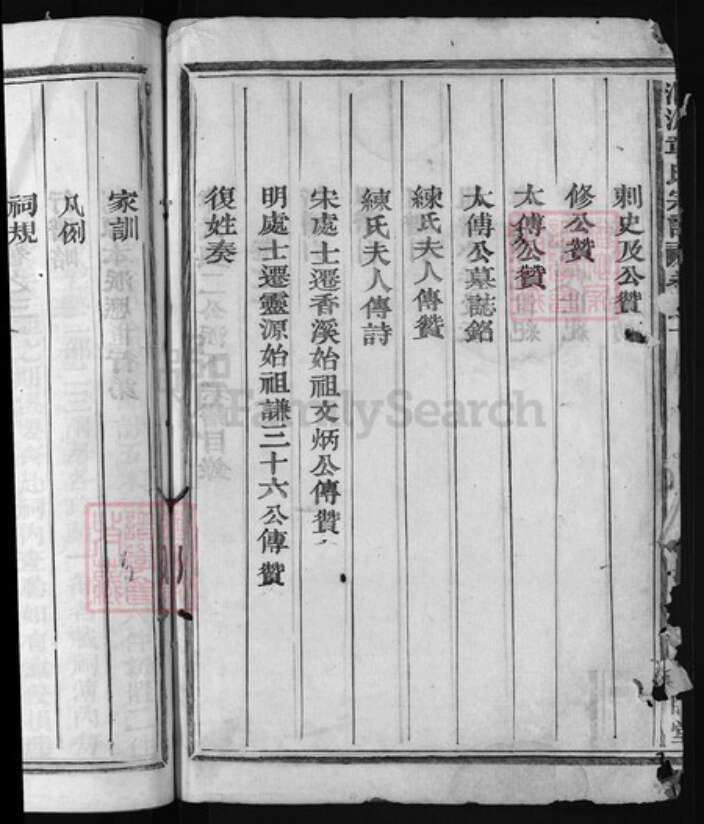 刺史及公贊
修公贊
太傅公贊
太傅公墓誌銘
練氏夫人傳贊
練氏夫人傳詩
宋處士遷香溪始祖文炳公傳贊
明處士遷靈源始祖謙三十六公傳贊
復姓奏
家訓
凡例
祠規
FamilySearch